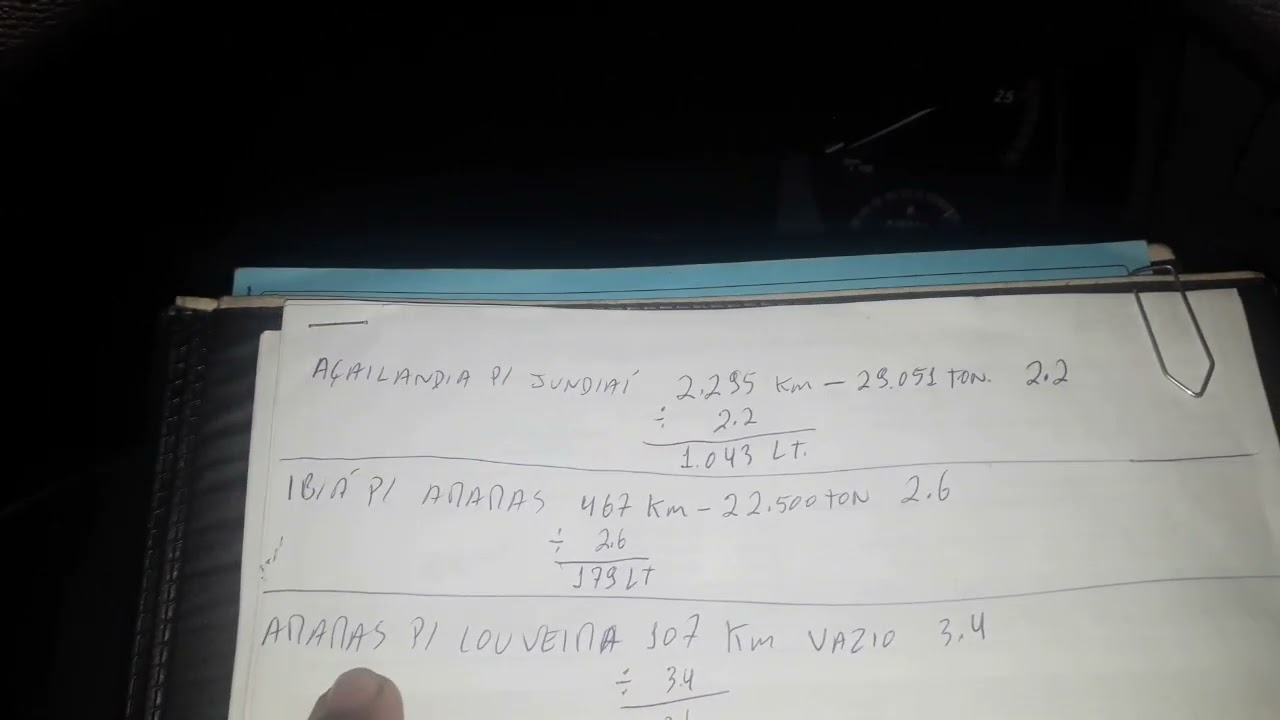 25
AÇAILANDIA P/ JUNDIAÍ 2.295 Km - 29.051 TON. 2.2
÷ 2.2
1.043 LT.
IBIÁ P/ ARARAS 467 Km - 22.500 TON 2.6
÷ 2.6
179 LT
ARARAS P/ LOUVEIRA 107 Km VAZIO 3.4
÷ 3.4